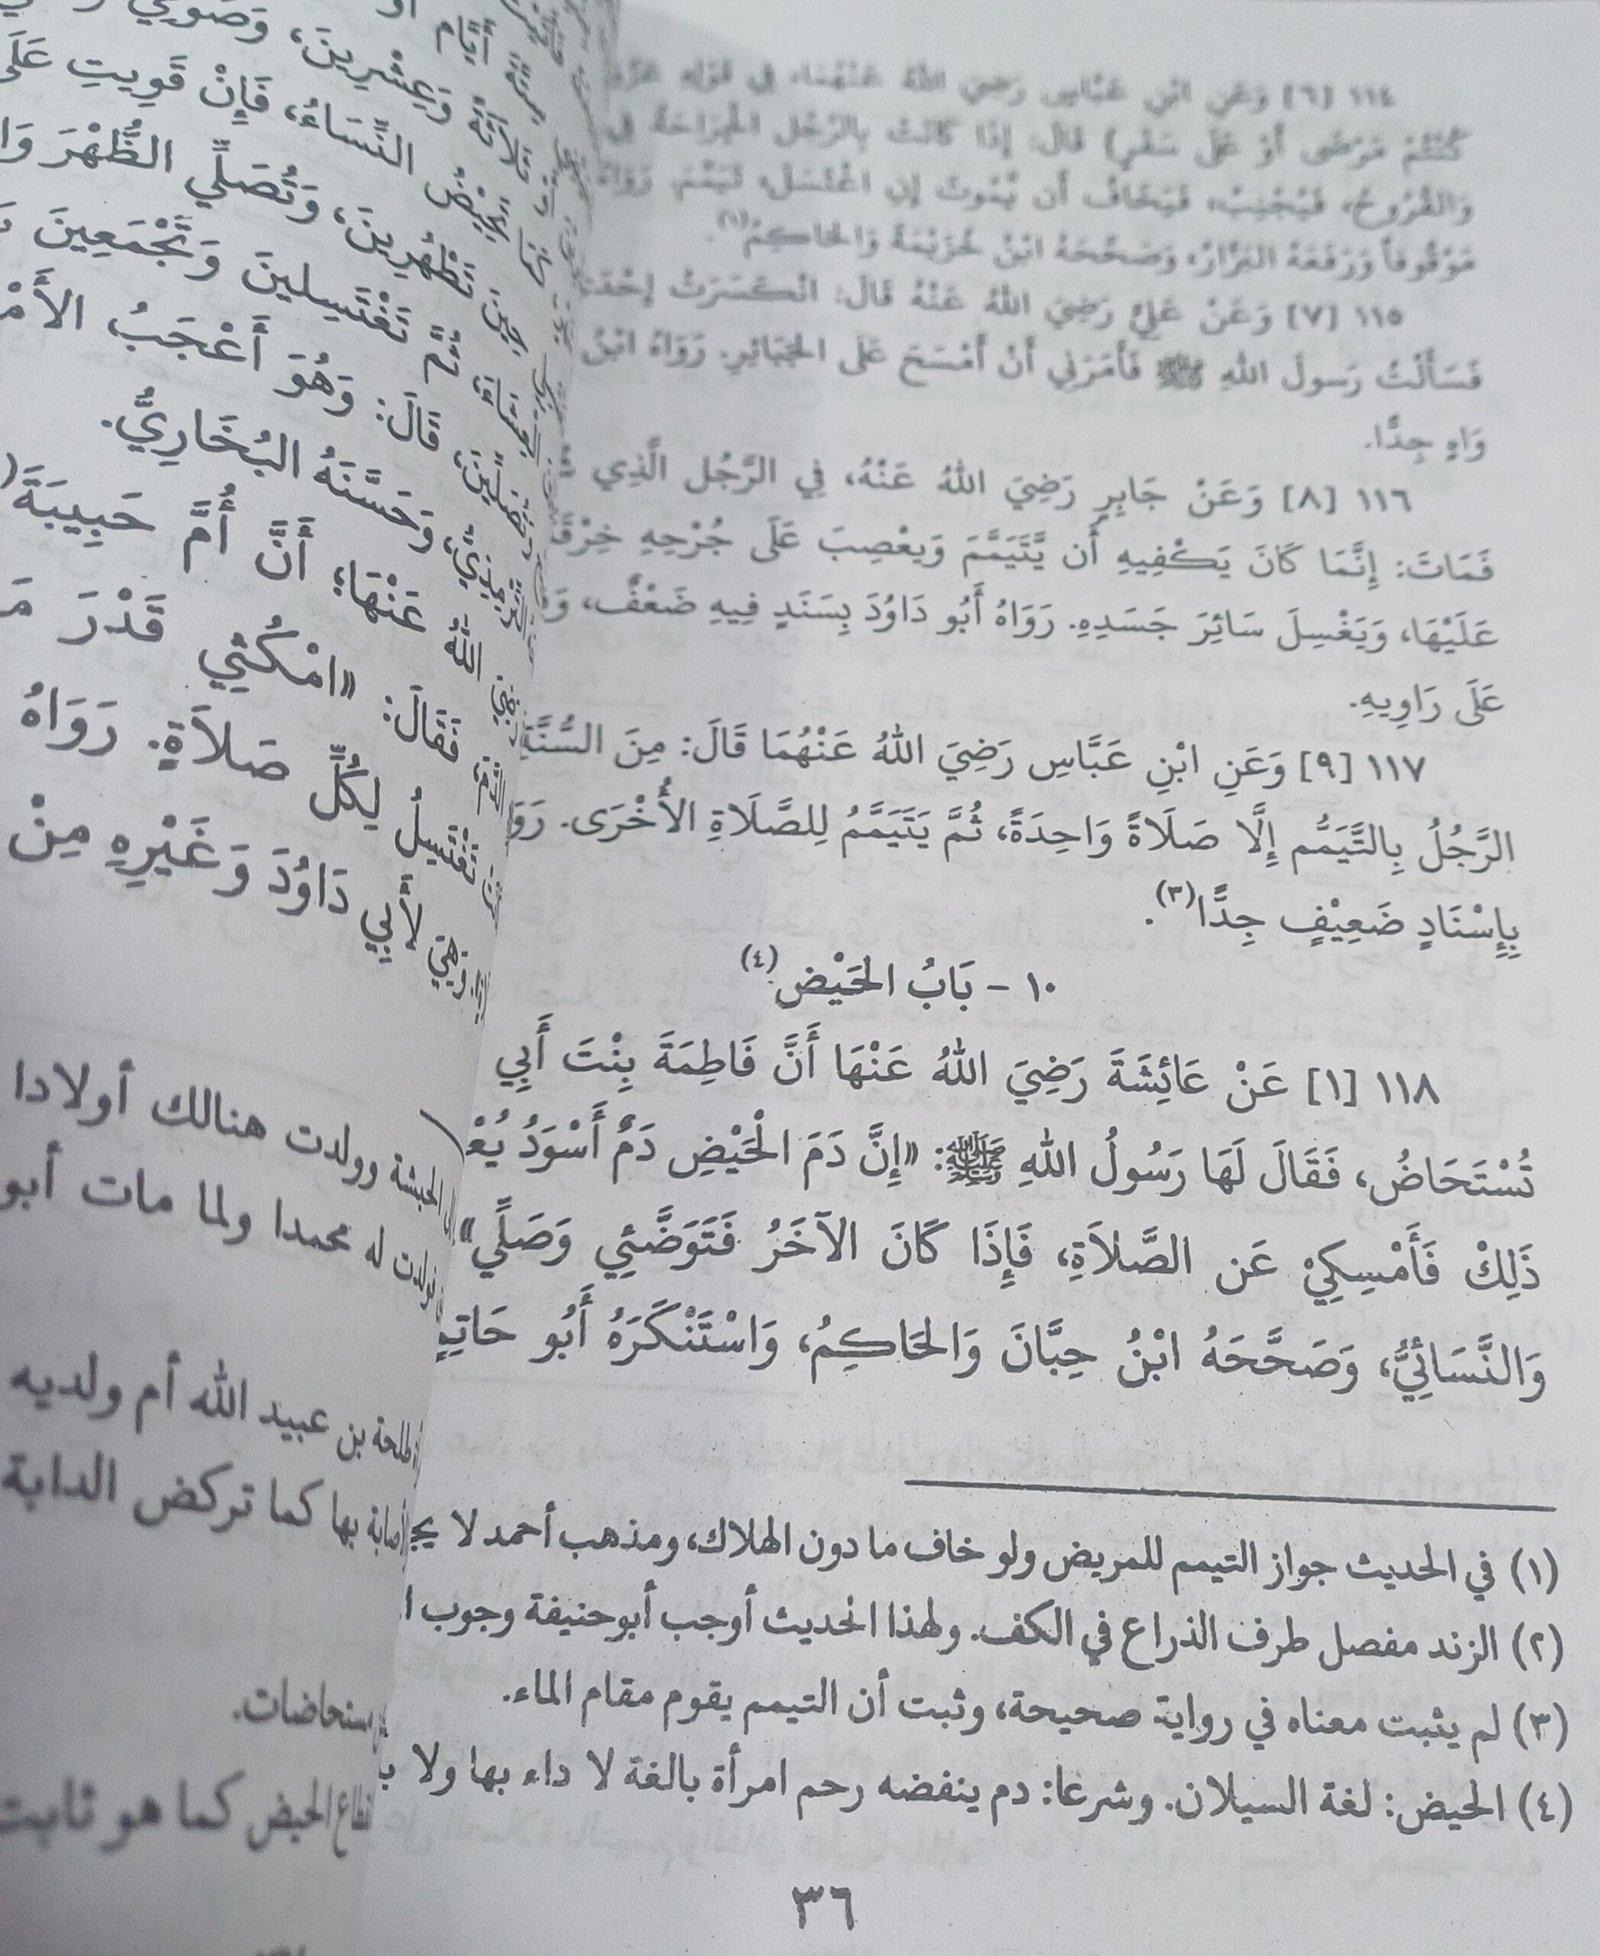 ١١٤ [٦] وَعَنِ ابْنِ عَبَّاسٍ رَضِيَ اللهُ عَنْهُمَا، فِي قَوْلِهِ عَزَّ
كُنْتُمْ مَرْضَى أَوْ عَلَى سَفَرٍ) قَالَ: إِذَا كَانَتْ بِالرَّجُلِ الْجِرَاحَةُ فِي
وَالقُرُوحُ، فَيُجْنِبُ، فَيَخَافُ أَن يَّمُوتَ إِنِ اغْتَسَلَ، تَيَمَّمَ. رَوَاهُ
مَوْقُوفاً وَرَفَعَهُ البَزَّارُ، وَصَحَّحَهُ ابْنُ خُزَيْمَةَ وَالحَاكِمُ(١).
١١٥ [٧] وَعَنْ عَلِيٍّ رَضِيَ اللهُ عَنْهُ قَالَ: انْكَسَرَتْ إِحْدَى
فَسَأَلْتُ رَسولَ اللهِ ﷺ فَأَمَرَنِي أَنْ أَمْسَحَ عَلَى الجَبَائِرِ. رَوَاهُ ابْنُ
وَاهٍ جِدًّا.
١١٦ [٨] وَعَنْ جَابِرٍ رَضِيَ اللهُ عَنْهُ، فِي الرَّجُلِ الَّذِي
فَمَاتَ: إِنَّمَا كَانَ يَكْفِيهِ أَن يَّتَيَمَّمَ وَيعْصِبَ عَلَى جُرْحِهِ خِرْقَةً
عَلَيْهَا، وَيَغْسِلَ سَائِرَ جَسَدِهِ. رَوَاهُ أَبُو دَاوُدَ بِسَنَدٍ فِيهِ ضَعْفٌ،
عَلَى رَاوِيهِ.
١١٧ [٩] وَعَنِ ابْنِ عَبَّاسٍ رَضِيَ اللهُ عَنْهُمَا قَالَ: مِنَ السُّنَّةِ
الرَّجُلُ بِالتَّيَمُّم إِلَّا صَلَاةً وَاحِدَةً، ثُمَّ يَتَيَمَّمُ لِلصَّلَاةِ الأُخْرَى. رَوَ
بِإِسْنَادٍ ضَعِيْفٍ جِدًّا(٣).
١٠ - بَابُ الحَيْضِ(٤)
١١٨ [١] عَنْ عَائِشَةَ رَضِيَ اللهُ عَنْهَا أَنَّ فَاطِمَةَ بِنْتَ أَبِي
تُسْتَحَاضُ، فَقَالَ لَهَا رَسُولُ اللهِ ﷺ: «إِنَّ دَمَ الْحَيْضِ دَمٌ أَسْوَدُ يُعْ
ذَلِكْ فَأَمْسِكِيْ عَنِ الصَّلَاةِ، فَإِذَا كَانَ الآخَرُ فَتَوَضَّئِي وَصَلِّي»
وَالنَّسَائِيُّ، وَصَحَّحَهُ ابْنُ حِبَّانَ وَالحَاكِمُ، وَاسْتَنْكَرَهُ أَبُو حَاتِمٍ
(١) في الحديث جواز التيمم للمريض ولو خاف ما دون الهلاك، ومذهب أحمد لا يج
(٢) الزند مفصل طرف الذراع في الكف. ولهذا الحديث أوجب أبوحنيفة وجوب ا
(٣) لم يثبت معناه في رواية صحيحة، وثبت أن التيمم يقوم مقام الماء.
(٤) الحيض: لغة السيلان. وشرعا: دم ينفضه رحم امرأة بالغة لا داء بها ولا
٣٦
أَيَّام أَوْ
ثَلَاثَةً وَعِشْرِينَ، وَصُومِي
تَحِيْضُ النِّسَاءُ، فَإِنْ قَوِيتِ عَلَى
حِينَ تَطْهُرِينَ، وَتُصَلِّي الظُّهْرَ وَا
ثُمَّ تَغْتَسِلينَ وَتَجْمَعِينَ
وَتُصَلِّينَ، قَالَ: وَهُوَ أَعْجَبُ الأَمْ
التِّرْمِذِيُّ، وَحَسَّنَهُ البُخَارِيُّ.
اللهُ عَنْهَا، أَنَّ أُمَّ حَبِيبَةَ
الدَّمَ، فَقَالَ: «امْكُثِي قَدْرَ مَ
تَغْتَسِلُ لِكُلِّ صَلَاةٍ. رَوَاهُ
وَهِيَ لأَبِي دَاوُدَ وَغَيْرِهِ مِنْ
الحبشة وولدت هنالك أولادا
فولدت له محمدا ولما مات أبو
طلحة بن عبيد الله أم ولديه
بها كما تركض الدابة
مستحاضات.
الحيض كما هو ثابت